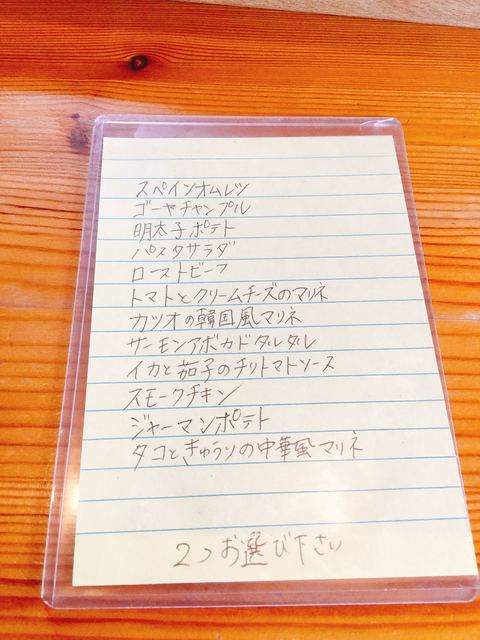 スペインオムレツ
ゴーヤチャンプル
明太子ポテト
パスタサラダ
ローストビーフ
トマトとクリームチーズのマリネ
カツオの韓国風マリネ
サーモンアボカドダルダル
イカと茄子のチリトマトソース
スモークチキン
ジャーマンポテト
タコときゅうりの中華風マリネ
2つお選び下さい